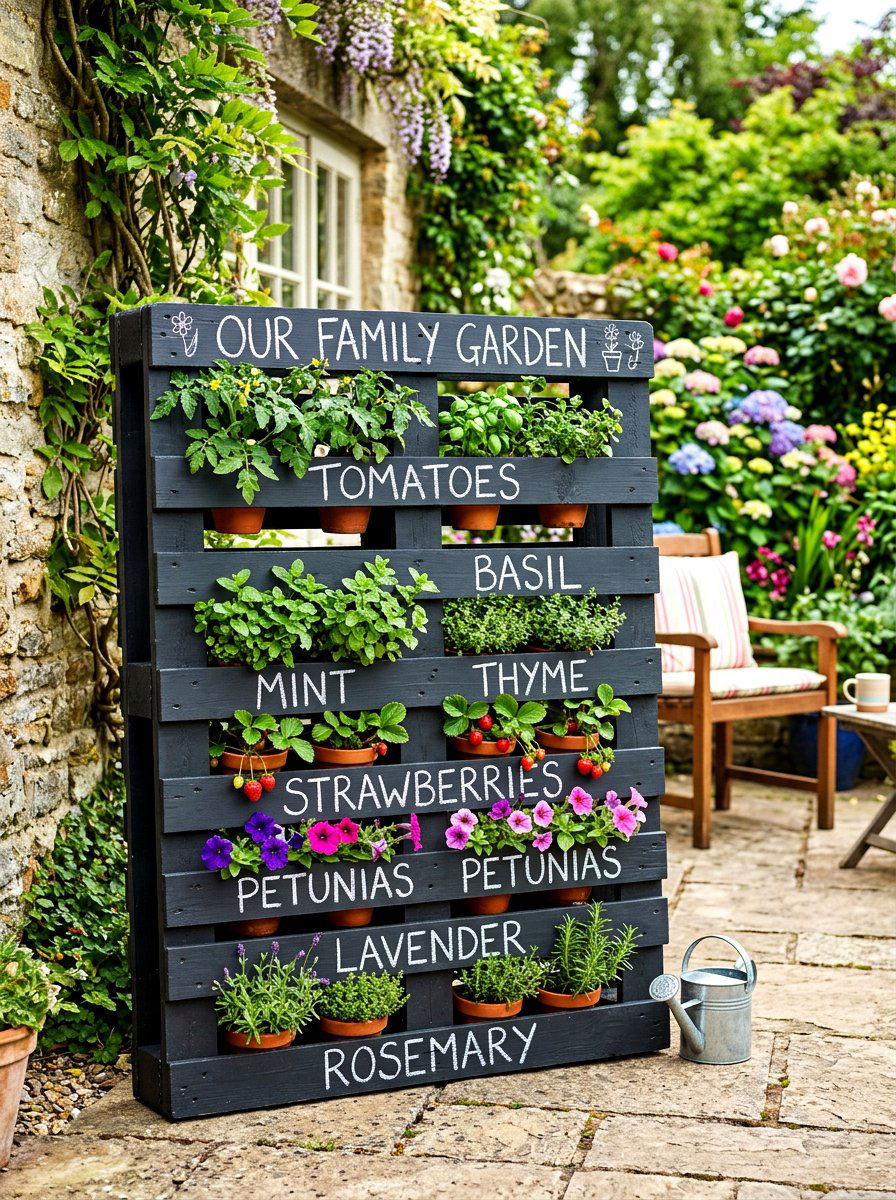 OUR FAMILY GARDEN
TOMATOES
BASIL
MINT THYME
STRAWBERRIES
PETUNIAS PETUNIAS
LAVENDER
ROSEMARY